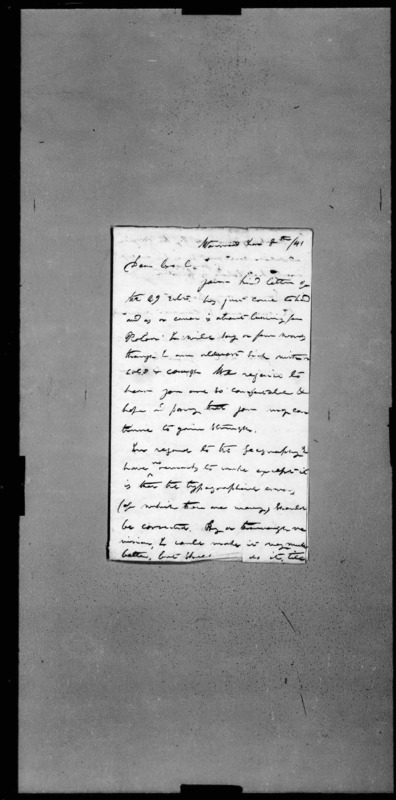 8th /41
Dear
Your kind letter of
the 29 has just come to hand
and as a is about leaving for
I will say a few words
though I am almost sick with a
cold & cough. We rejoice to
hear you are so comfortable &
hope & pray that you may con
tinue to gain strength.
In regard to the Geography I
have no remarks to make except it
is that the typographical errors,
(of which there are many) should
be corrected. By a thorough re
vision, I could make it very much
better, but do it, till